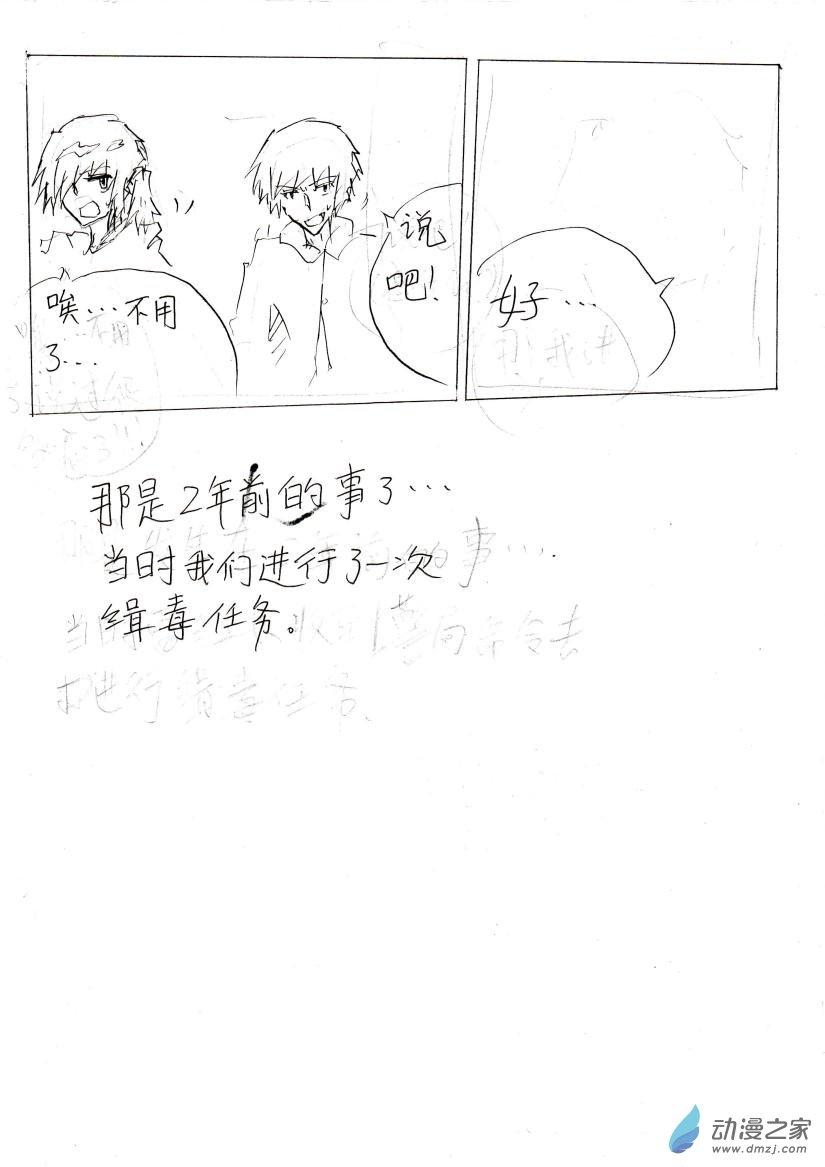 唉…不用
了…
说
吧!
好…
那是2年前的事了…
当时我们进行了一次
缉毒任务。
动漫之家
www.dmzj.com